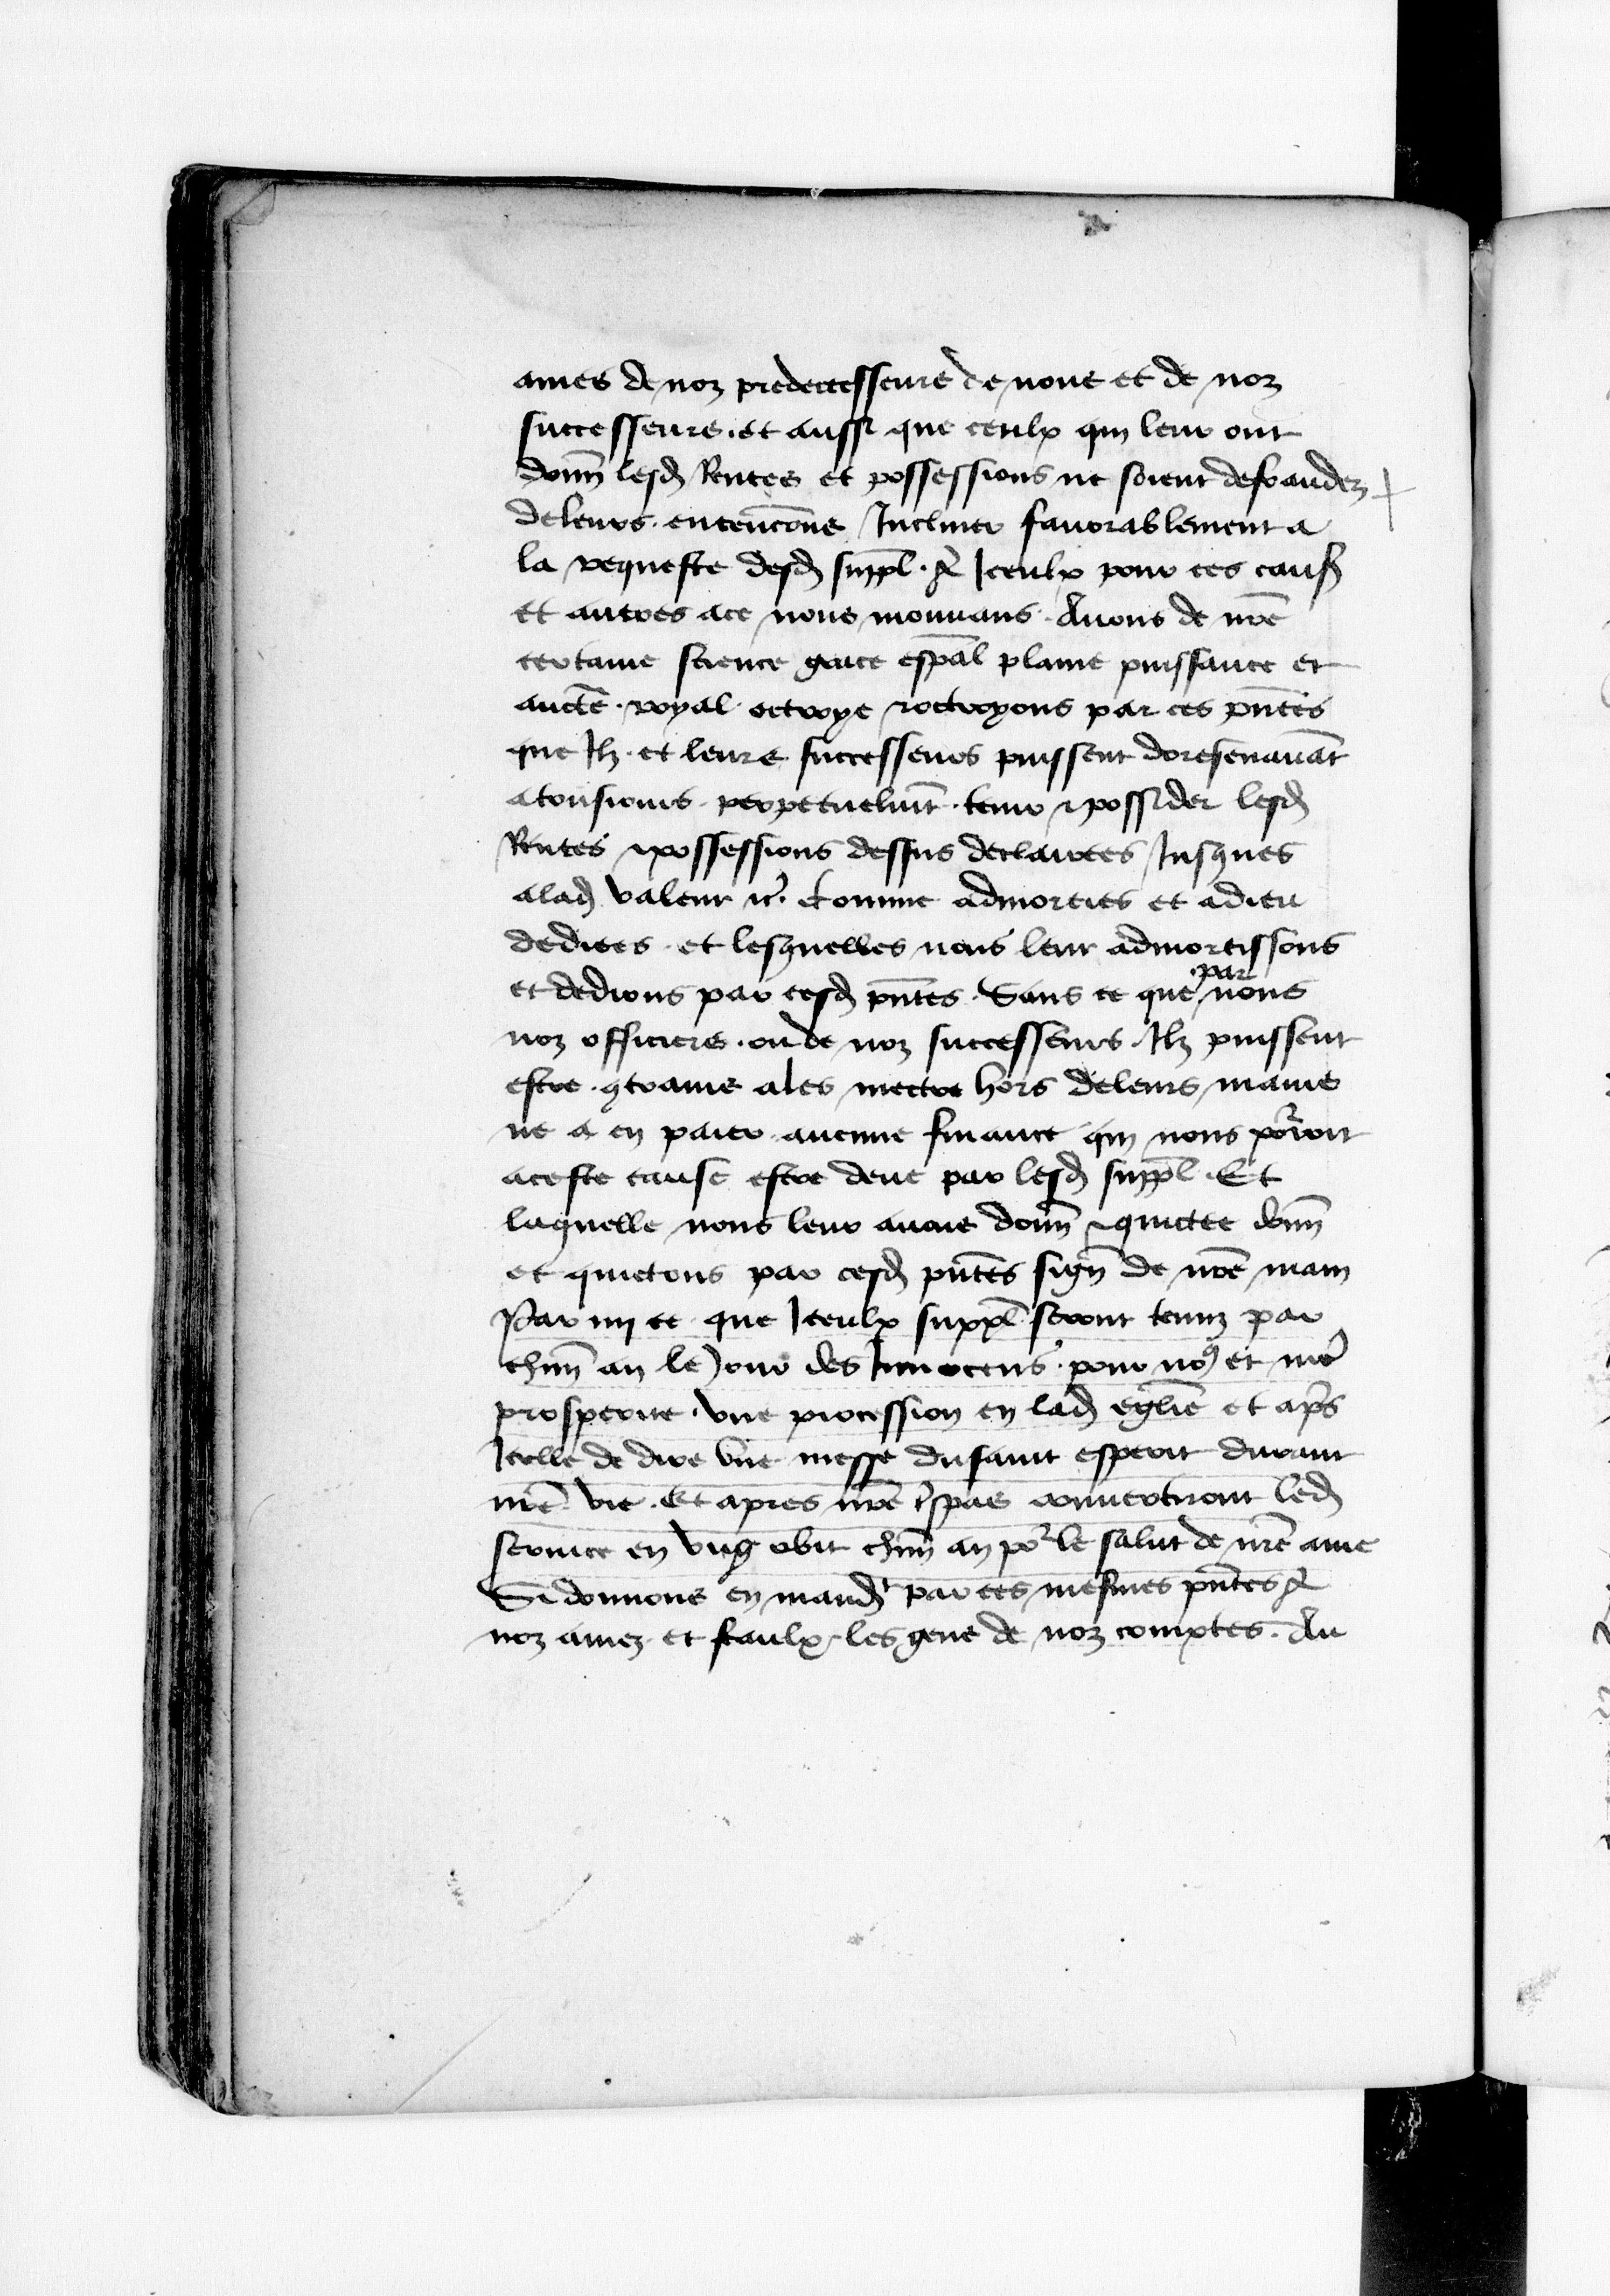 ames de noz predecesseurs de nous et de noz
successeurs. et aussi que ceulx qui leur ont
donn̄ lesd. Rentes et possessions ne soient defraudez
de leurs entencōns Incliner fauorablement a
la requeste desd. suppl. A Iceulx pour ces caus.
et autres ace nous mouuans. Auons de nr̄e
certaine science grace esp̄al plaine puissance et
aucte. royal octroye & octroyons par ces pn̄tes
que Ilz et leurs successeurs puissent doresenauāt
a tousiours. perpetuelmt̄. tenir & possider lesd.
Rentes & possessions dessus declairees Iusques
a lad. valeur &c. Comme admorties et a dieu
dediees. et lesquelles nous leur admortissons
et dedions par cesd. pn̄tes. Sans ce que par nous
noz officiers. ou de noz successeurs. Ilz puissent
estre. ꝯtrains a les mectre hors de leurs mains
ne a en paier aucune finance qui nous po͛roit
a ceste cause estre deue par lesd. suppl. Et
laquelle nous leur auons donn̄ & quictee donn̄
et quictons par cesd. pn̄tes sign̄ de nr̄e main
Parmy ce que Iceulx suppl. seront tenuz par
chūn an le Jour des Innocens. pour noꝯ et nr̄e
prosperite. vne procession en lad. eglīe et ap̄s
Icelle de dire vne messe du saint esperit durant
nr̄e vie. Et apres nr̄e t͛spas conuertiront led.
seruice en vng obit chūn an po͛ le salut de nr̄e ame
Si donnons en mand. par ces mesmes pn̄tes A
noz amez et feaulx les gens de noz comptes. Au